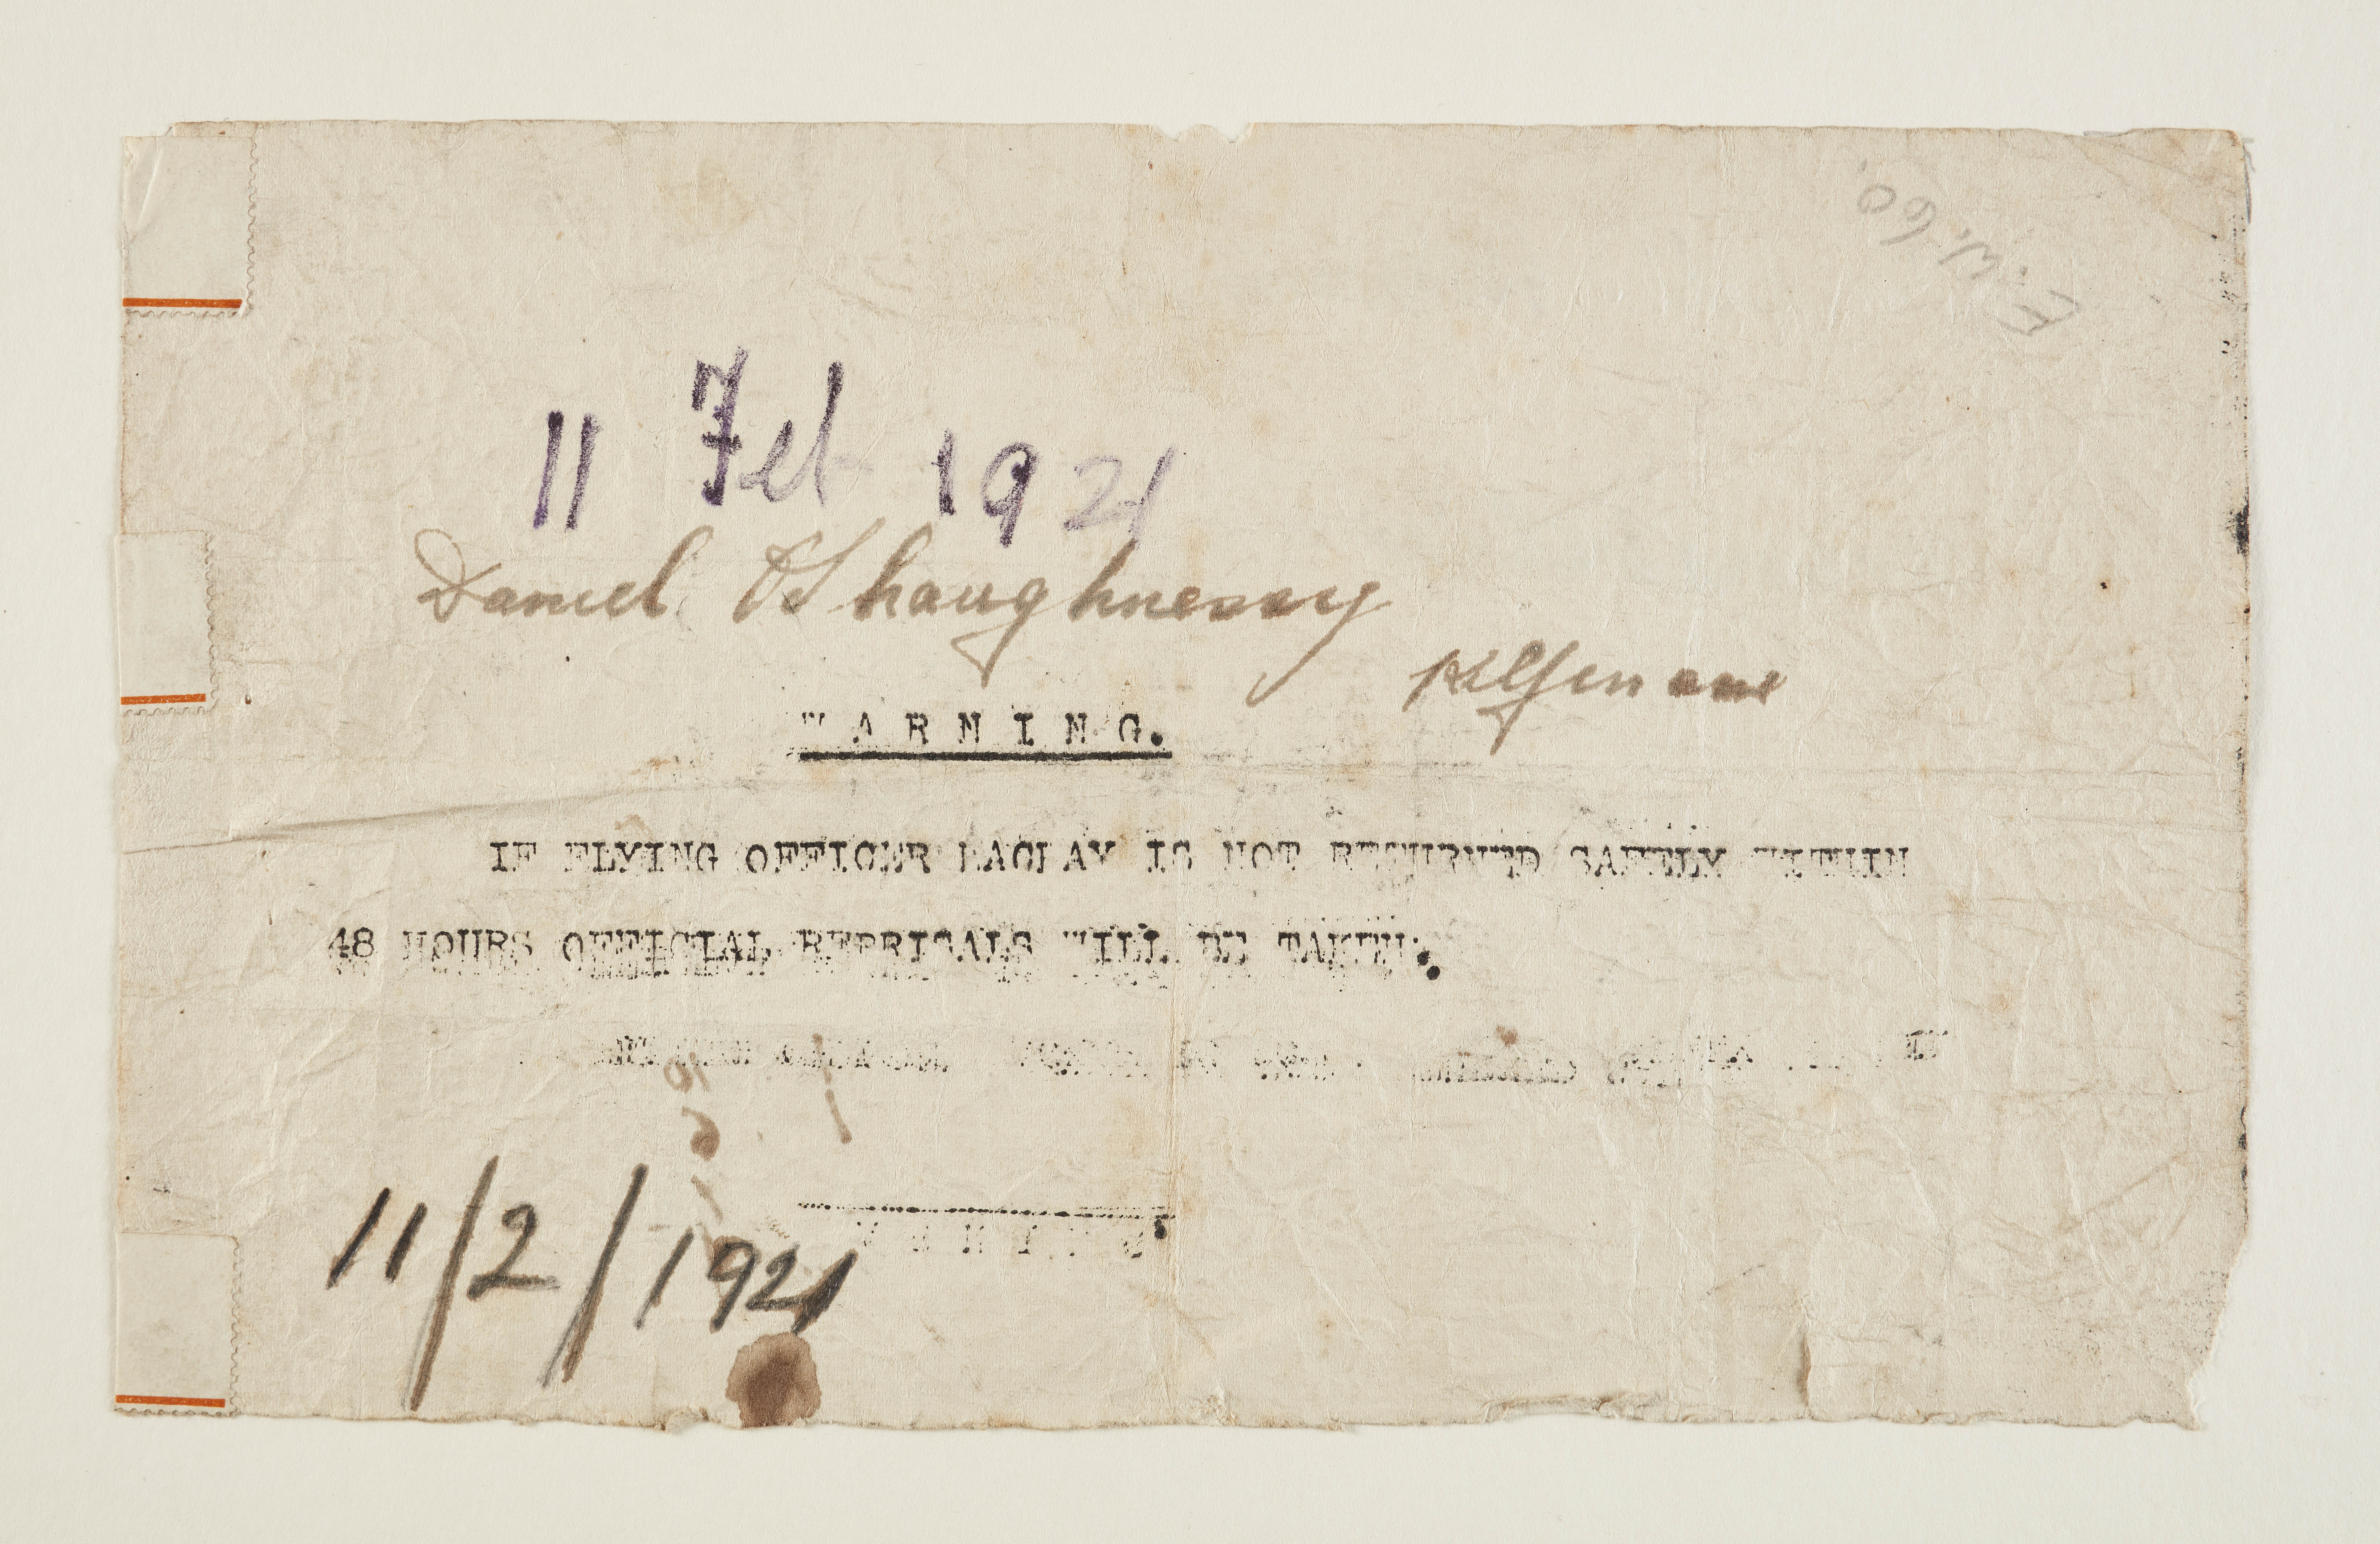 11 Feb 1921
Daniel O'Shaughnessy
Kilfinnane
WARNING.
IF FLYING OFFICER MACKAY IS NOT RETURNED SAFELY WITHIN
48 HOURS OFFICIAL REPRISALS WILL BE TAKEN.
11/2/1921